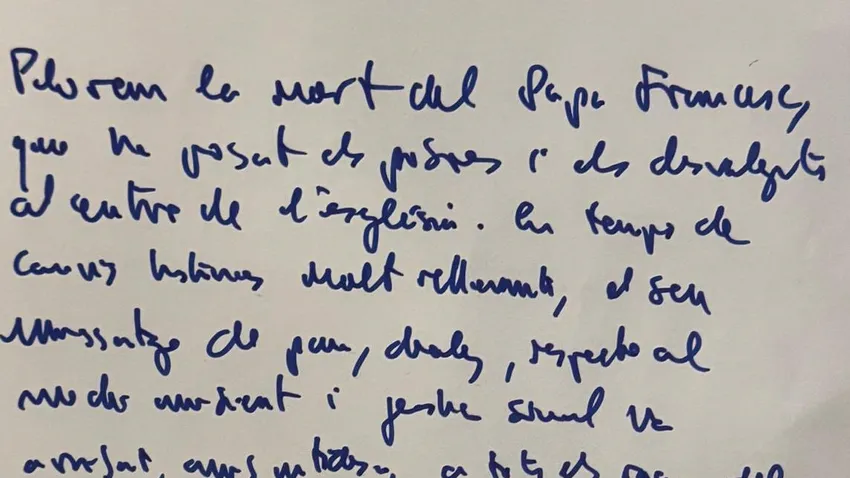 Plorem la mort del Papa Francesc,
que ha posat els pobres i els desvalguts
al centre de l'església. En temps de
canvis històrics molt rellevants, el seu
missatge de pau, dialeg, respecte al
medi ambient i justícia social va
arribar a tots els